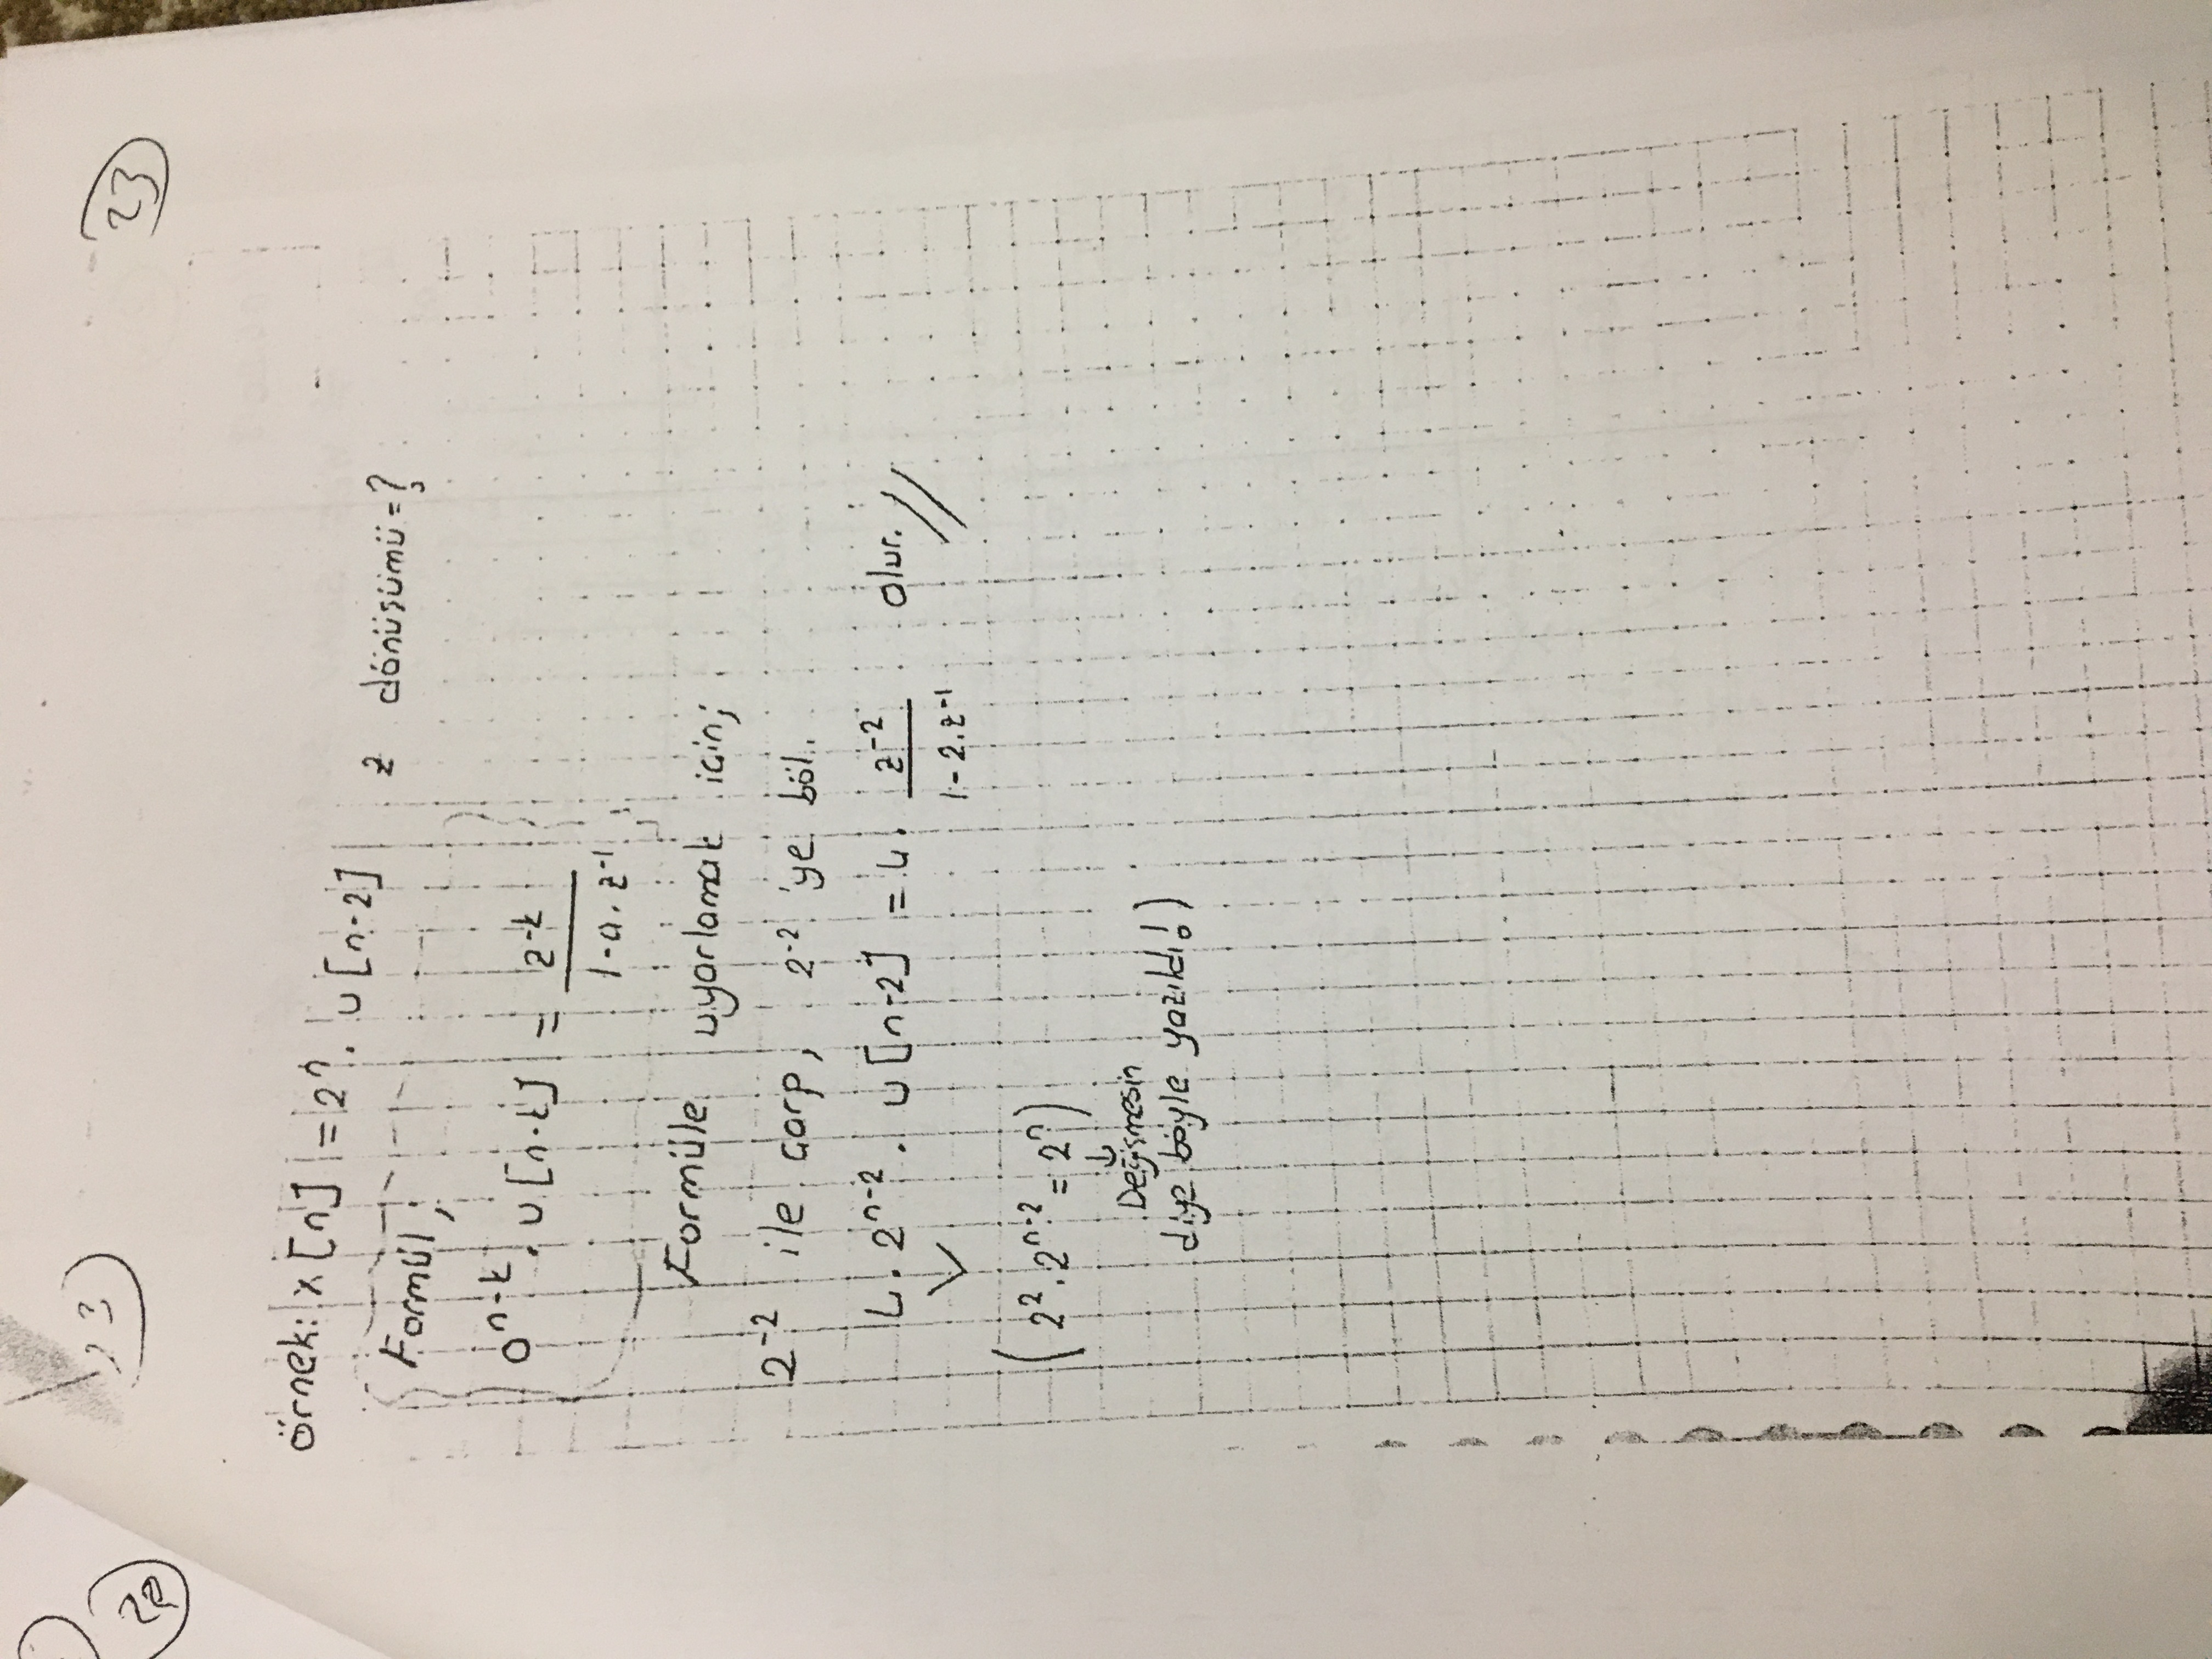 23
23
örnek: x[n] = 2ⁿ. u[n-2] z dönüşümü=?
Formül;
aⁿ⁻ᵏ. u[n-k] = z⁻ᵏ / 1-a.z⁻¹
Formüle uyarlamak için;
2⁻² ile çarp, 2⁻² 'ye böl.
4. 2ⁿ⁻². u[n-2] = 4. z⁻² / 1-2.z⁻¹ olur.//
(2². 2ⁿ⁻² = 2ⁿ)
↓
Değişmesin
diye böyle yazıldı!)